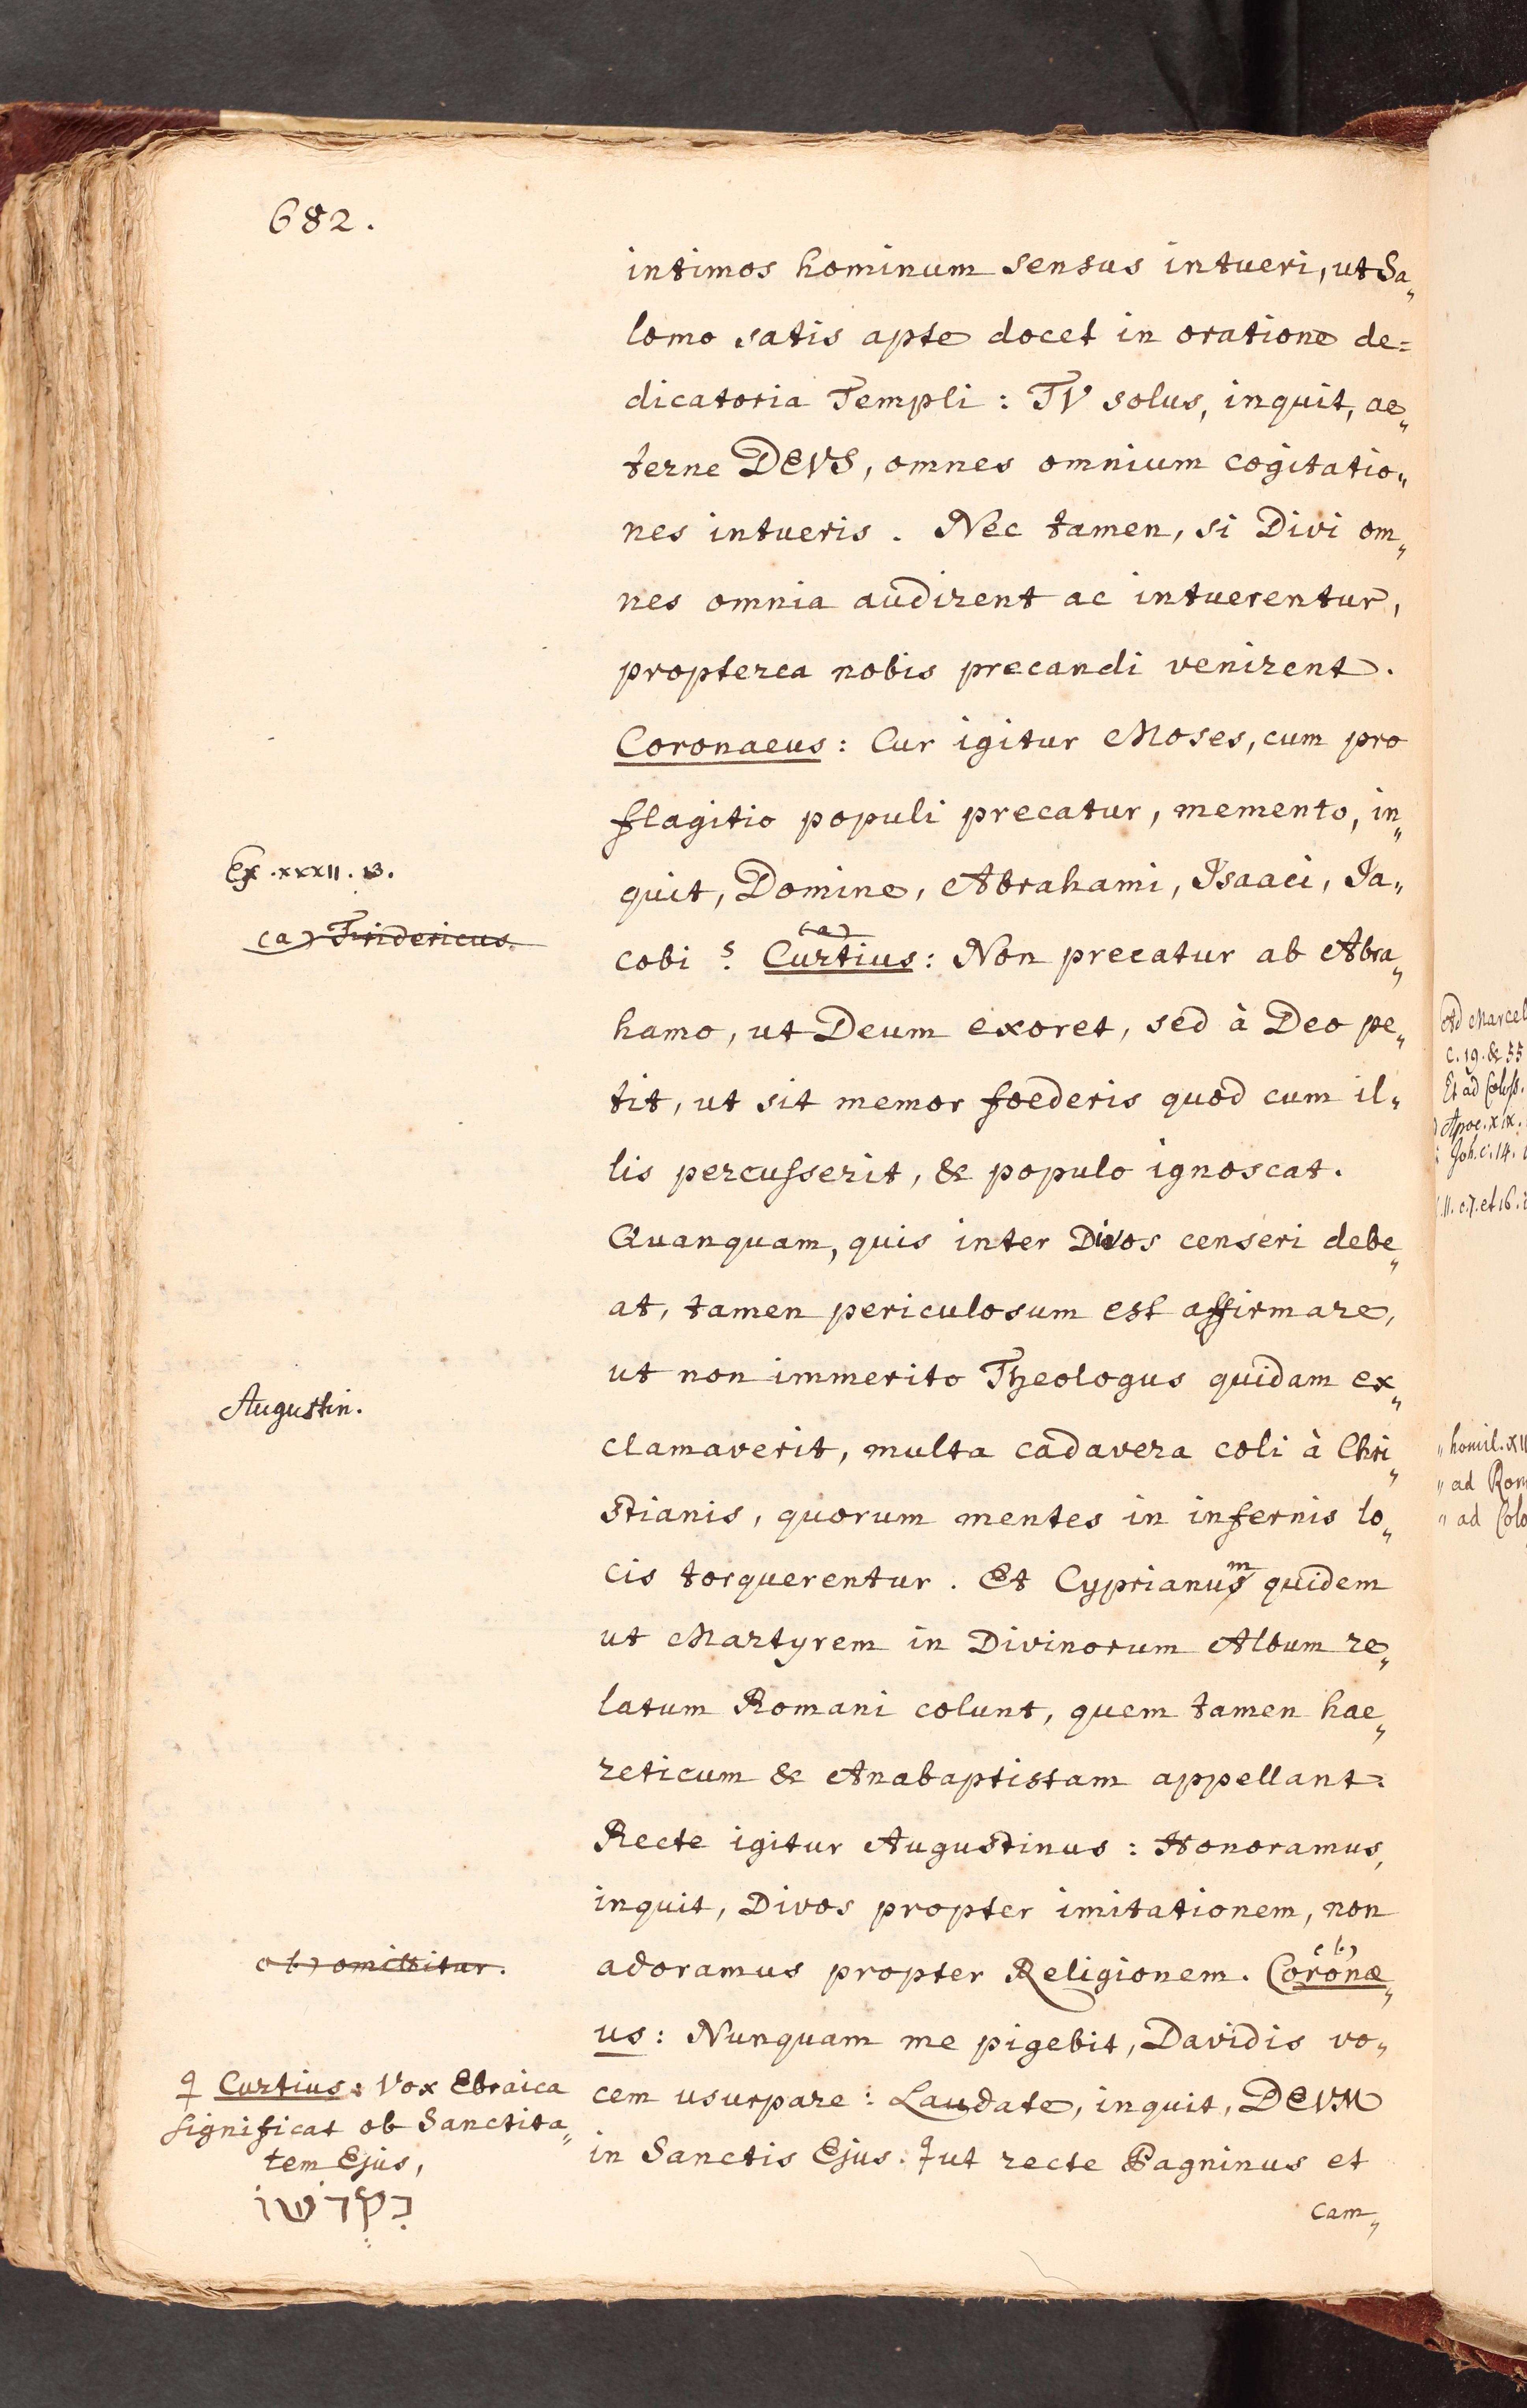 682.
intimos hominum sensus intueri, ut Sa„
lomo satis apte docet in oratione de=
dicatoria Templi : TV solus, inquit, ae„
terne DEVS, omnes omnium cogitatio„
nes intueris . Nec tamen, si Divi om„
nes omnia audirent ac intuerentur,
propterea nobis precandi venirent.
Coronaeus : Cur igitur Moses, cum pro
flagitio populi precatur, memento, in„
Ex. xxxII. 13.
quit, Domine, Abrahami, Isaaci, Ja„
(a) Fridericus.
(a)
cobi ? Curtius : Non precatur ab Abra„
hamo, ut Deum exoret, sed à Deo pe„
tit, ut sit memor foederis quod cum il„
lis percusserit, & populo ignoscat.
Quanquam, quis inter Divos censeri debe„
at, tamen periculosum est affirmare,
ut non immerito Theologus quidam ex„
Augustin.
clamaverit, multa cadavera coli à Chri„
stianis, quorum mentes in infernis lo„
m
cis torquerentur . Et Cyprianus quidem
ut Martyrem in Divinorum Album re„
latum Romani colunt, quem tamen hae„
reticum & Anabaptistam appellant.
Recte igitur Augustinus : Honoramus,
inquit, Divos propter imitationem, non
(b)
(b) omittitur.
adoramus propter Religionem. Coronæ„
us : Nunquam me pigebit, Davidis vo„
cem usurpare : Laudate, inquit, DEVM
in Sanctis Ejus. ꟼ ut recte Pagninus et
cam„
ꟼ Curtius : Vox Ebraica
significat ob Sanctita„
tem Ejus,
בקדשו
Ad Marcel
c. 19. & 55
Et ad Coloss.
Apoc. XIX.
Joh. c. 14.
II. c. 7. et 16.
„ homil. XII
„ ad Rom
„ ad Colo